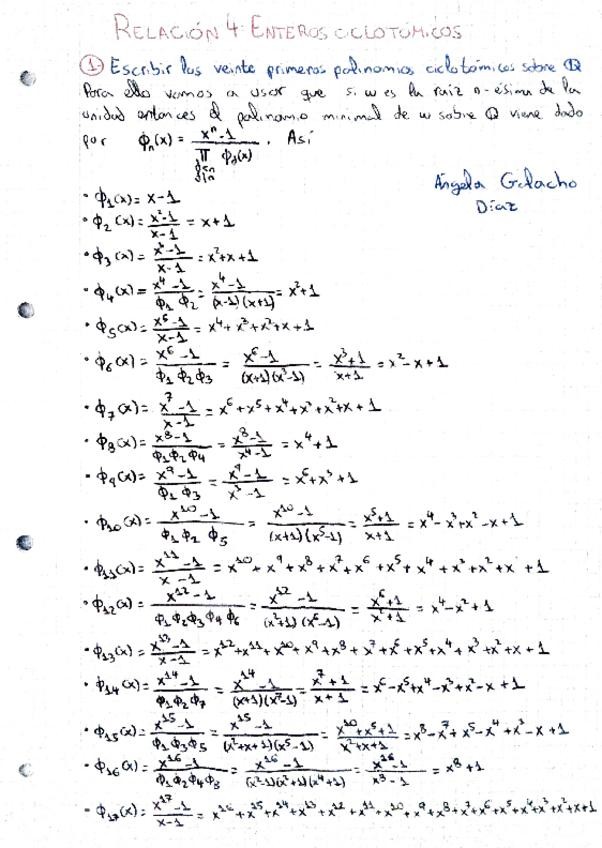 RELACIÓN 4: ENTEROS CICLOTÓMICOS
① Escribir los veinte primeros polinomios ciclotómicos sobre Q
Para ello vamos a usar que si w es la raíz n-ésima de la
unidad entonces el polinomio minimal de w sobre Q viene dado
por ϕₙ(x) = (xⁿ-1)/(∏ ϕd(x)) d<n d|n. Así
Ángela Gelacho
Díaz
• ϕ₁(x) = x-1
• ϕ₂(x) = (x²-1)/(x-1) = x+1
• ϕ₃(x) = (x³-1)/(x-1) = x²+x+1
• ϕ₄(x) = (x⁴-1)/(ϕ₁ ϕ₂) = (x⁴-1)/((x-1)(x+1)) = x²+1
• ϕ₅(x) = (x⁵-1)/(x-1) = x⁴+x³+x²+x+1
• ϕ₆(x) = (x⁶-1)/(ϕ₁ ϕ₂ ϕ₃) = (x⁶-1)/((x+1)(x³-1)) = (x³+1)/(x+1) = x²-x+1
• ϕ₇(x) = (x⁷-1)/(x-1) = x⁶+x⁵+x⁴+x³+x²+x+1
• ϕ₈(x) = (x⁸-1)/(ϕ₁ϕ₂ϕ₄) = (x⁸-1)/(x⁴-1) = x⁴+1
• ϕ₉(x) = (x⁹-1)/(ϕ₁ ϕ₃) = (x⁹-1)/(x³-1) = x⁶+x³+1
• ϕ₁₀(x) = (x¹⁰-1)/(ϕ₁ ϕ₂ ϕ₅) = (x¹⁰-1)/((x+1)(x⁵-1)) = (x⁵+1)/(x+1) = x⁴-x³+x²-x+1
• ϕ₁₁(x) = (x¹¹-1)/(x-1) = x¹⁰+x⁹+x⁸+x⁷+x⁶+x⁵+x⁴+x³+x²+x+1
• ϕ₁₂(x) = (x¹²-1)/(ϕ₁ϕ₂ϕ₃ϕ₄ϕ₆) = (x¹²-1)/((x²+1)(x⁶-1)) = (x⁶+1)/(x²+1) = x⁴-x²+1
• ϕ₁₃(x) = (x¹³-1)/(x-1) = x¹²+x¹¹+x¹⁰+x⁹+x⁸+x⁷+x⁶+x⁵+x⁴+x³+x²+x+1
• ϕ₁₄(x) = (x¹⁴-1)/(ϕ₁ϕ₂ϕ₇) = (x¹⁴-1)/((x+1)(x⁷-1)) = (x⁷+1)/(x+1) = x⁶-x⁵+x⁴-x³+x²-x+1
• ϕ₁₅(x) = (x¹⁵-1)/(ϕ₁ϕ₃ϕ₅) = (x¹⁵-1)/((x²+x+1)(x⁵-1)) = (x¹⁰+x⁵+1)/(x²+x+1) = x⁸-x⁷+x⁵-x⁴+x³-x+1
• ϕ₁₆(x) = (x¹⁶-1)/(ϕ₁ϕ₂ϕ₄ϕ₈) = (x¹⁶-1)/((x²-1)(x²+1)(x⁴+1)) = (x¹⁶-1)/(x⁸-1) = x⁸+1
• ϕ₁₇(x) = (x¹⁷-1)/(x-1) = x¹⁶+x¹⁵+x¹⁴+x¹³+x¹²+x¹¹+x¹⁰+x⁹+x⁸+x⁷+x⁶+x⁵+x⁴+x³+x²+x+1